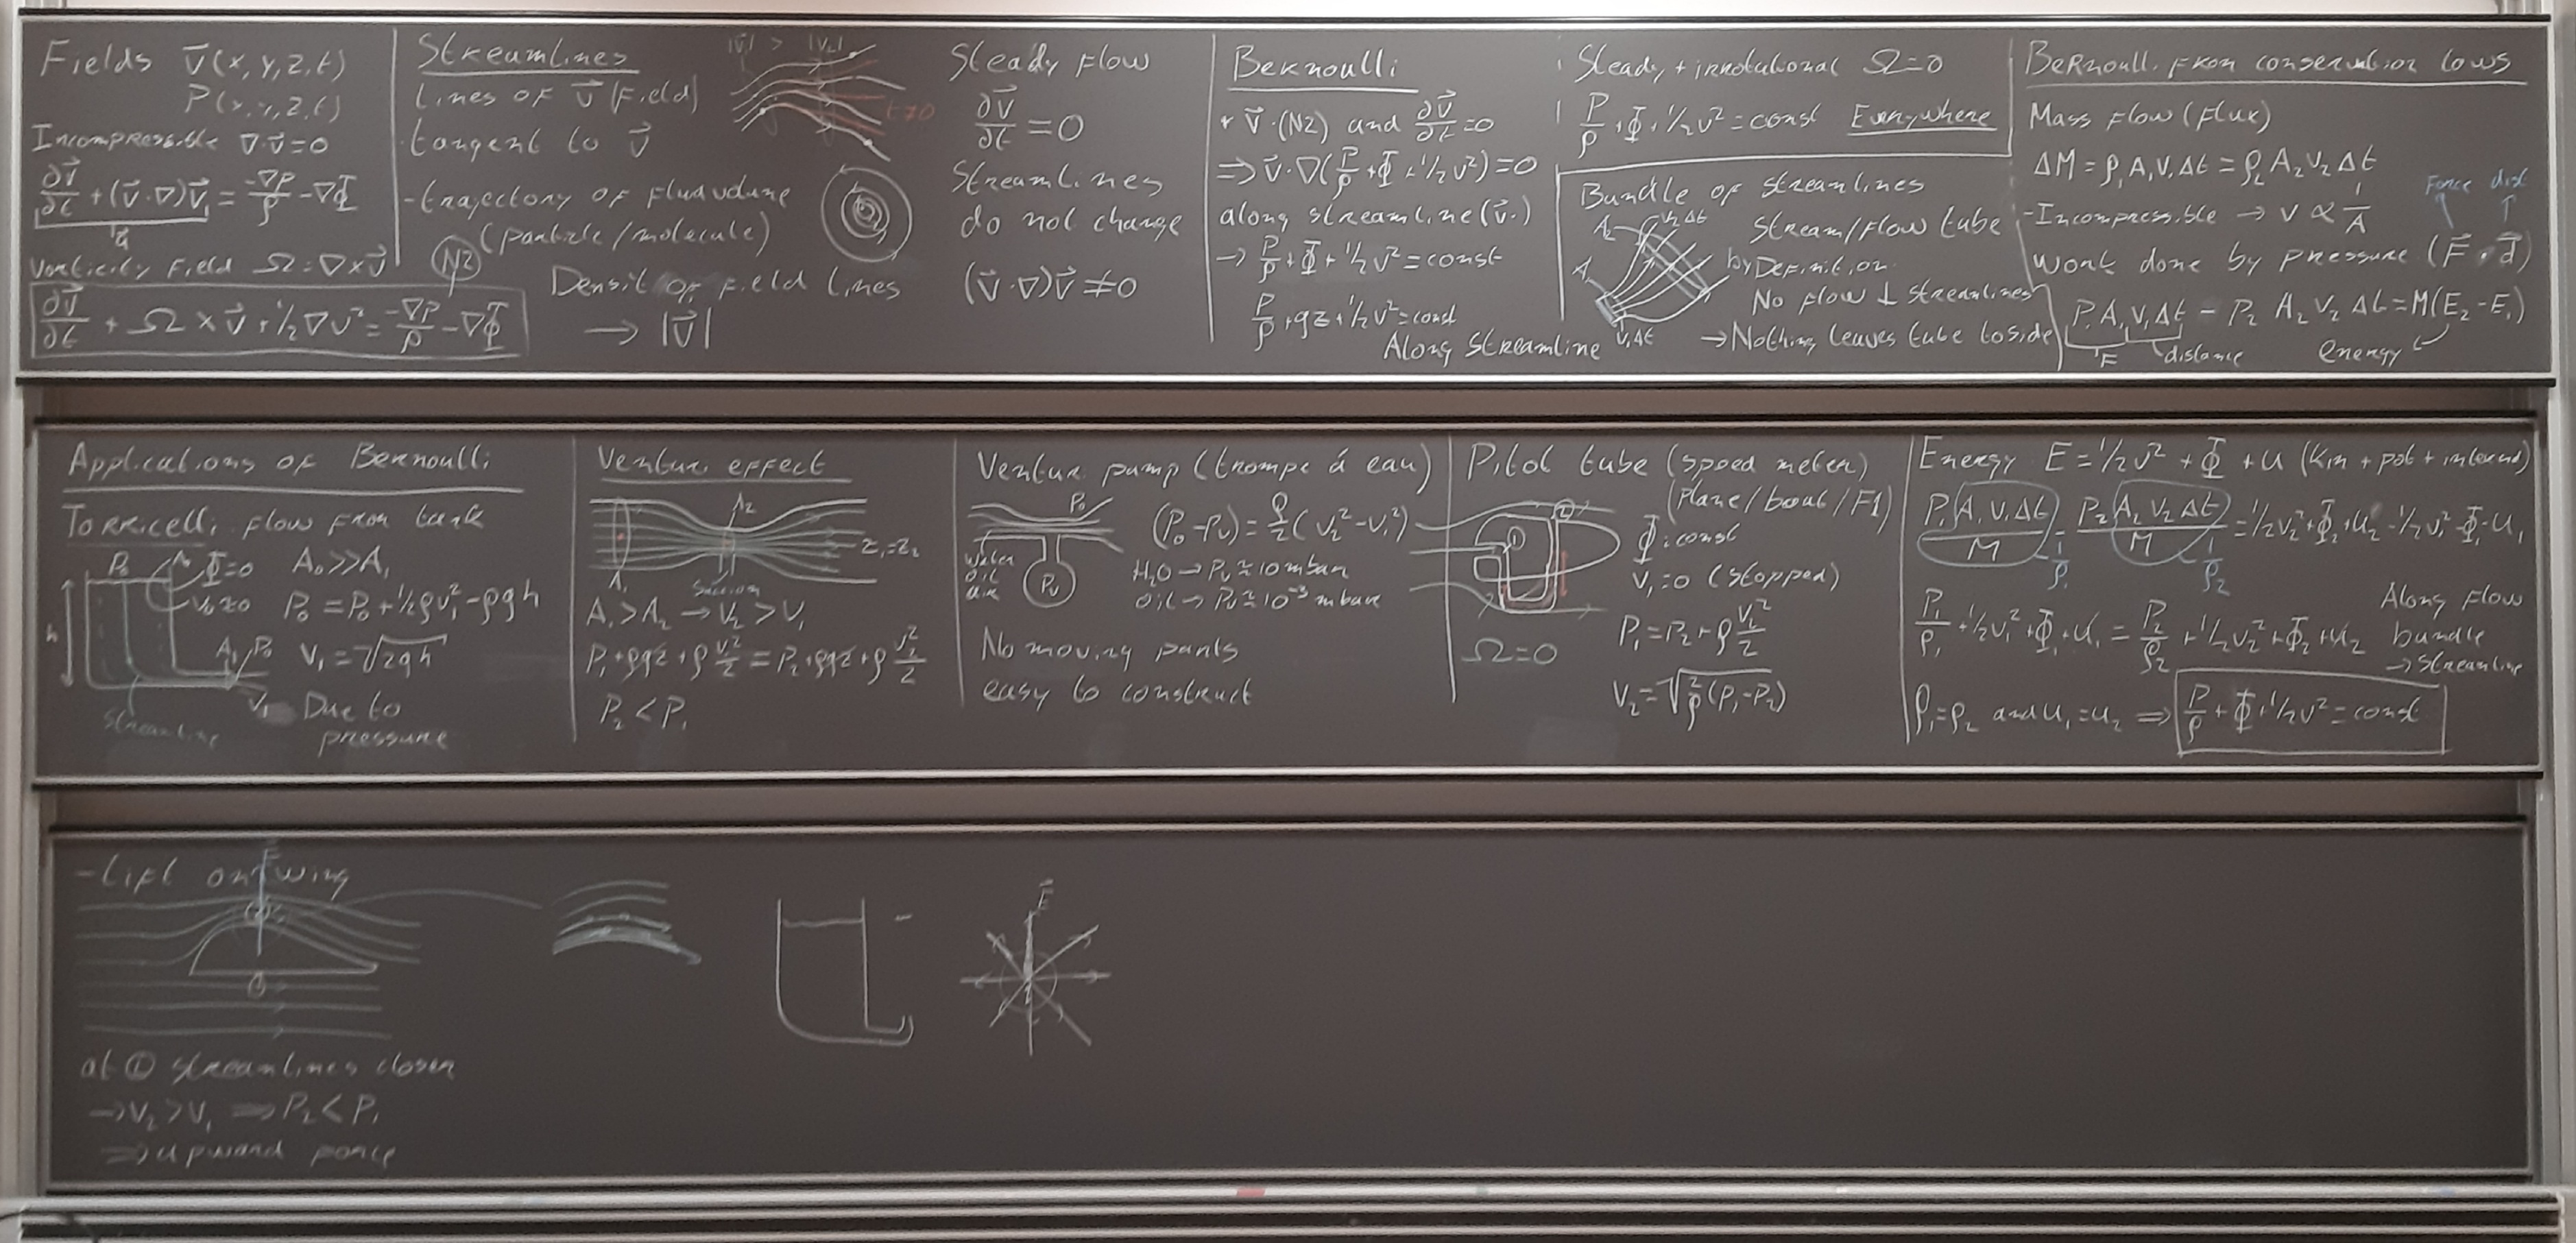 Fields v⃗(x,y,z,t)
P(x,y,z,t)
Incompressible ∇·v⃗=0
∂v⃗/∂t + (v⃗·∇)v⃗ = -∇P/ρ - ∇Φ
a⃗
Vorticity Field Ω=∇×v⃗
∂v⃗/∂t + Ω×v⃗ + 1/2∇v² = -∇P/ρ - ∇Φ
N2
Streamlines
Lines of v⃗ (Field)
tangent to v⃗
-trajectory of Fluid
(particle/molecule)
Densit of field lines
→ |v⃗|
|v₁| > |v₂|
t>0
Steady Flow
∂v⃗/∂t = 0
Streamlines
do not change
(v⃗·∇)v⃗ ≠ 0
Bernoulli
v⃗·(N2) and ∂v⃗/∂t=0
⇒ v⃗·∇(P/ρ + Φ + 1/2v²)=0
along streamline (v⃗·)
→ P/ρ + Φ + 1/2v² = const
P/ρ + gz + 1/2v² = const
Along streamline
Steady + irrotational Ω=0
P/ρ + Φ + 1/2v² = const Everywhere
Bundle of streamlines
A₂ v₂Δt
A₁
v₁Δt
Stream/Flow tube
by Definition
No flow ⊥ streamlines
→Nothing leaves tube to side
Bernoulli from conservation laws
Mass Flow (Flux)
ΔM = ρ₁A₁v₁Δt = ρ₂A₂v₂Δt
-Incompressible → v ∝ 1/A
Force dist
Work done by pressure (F⃗·d⃗)
P₁A₁v₁Δt - P₂A₂v₂Δt = M(E₂-E₁)
F distance energy
Applications of Bernoulli
Torricelli flow from tank
P₀ A₀ Φ=0
v₀≈0
h
A₁ P₀
v₁
streamline
A₀>>A₁
P₀ = P₀ + 1/2ρv₁² - ρgh
v₁ = √2gh
Due to
pressure
Venturi effect
A₂
A₁
z₁=z₂
Suction
A₁>A₂ → v₂>v₁
P₁+ρgz+ρ v₁²/2 = P₂+ρgz+ρ v₂²/2
P₂<P₁
Ventur pump (trompe á eau)
P₀
Water
Oil
Air
Pv
(P₀-Pv) = ρ/2 (v₂²-v₁²)
H₂O → Pv≈10 mbar
Oil → Pv≈10⁻³ mbar
No moving parts
easy to construct
Pitot tube (speed meter)
(plane/boat/F1)
① ②
Φ: const
v₁=0 (stopped)
P₁=P₂+ρ v₂²/2
Ω=0
v₂=√2/ρ(P₁-P₂)
Energy E=1/2v² + Φ + u (kin + pot + internal)
P₁A₁v₁Δt/M - P₂A₂v₂Δt/M = 1/2v₂²+Φ₂+u₂-1/2v₁²-Φ₁-u₁
1/ρ₁ 1/ρ₂
P₁/ρ₁+1/2v₁²+Φ₁+u₁ = P₂/ρ₂+1/2v₂²+Φ₂+u₂
Along Flow
bundle
→streamline
ρ₁=ρ₂ and u₁=u₂ ⇒ P/ρ+Φ+1/2v²=const
-Lift on wing
F
at ① streamlines closer
→v₂>v₁ ⇒ P₂<P₁
⇒upward force
F⃗